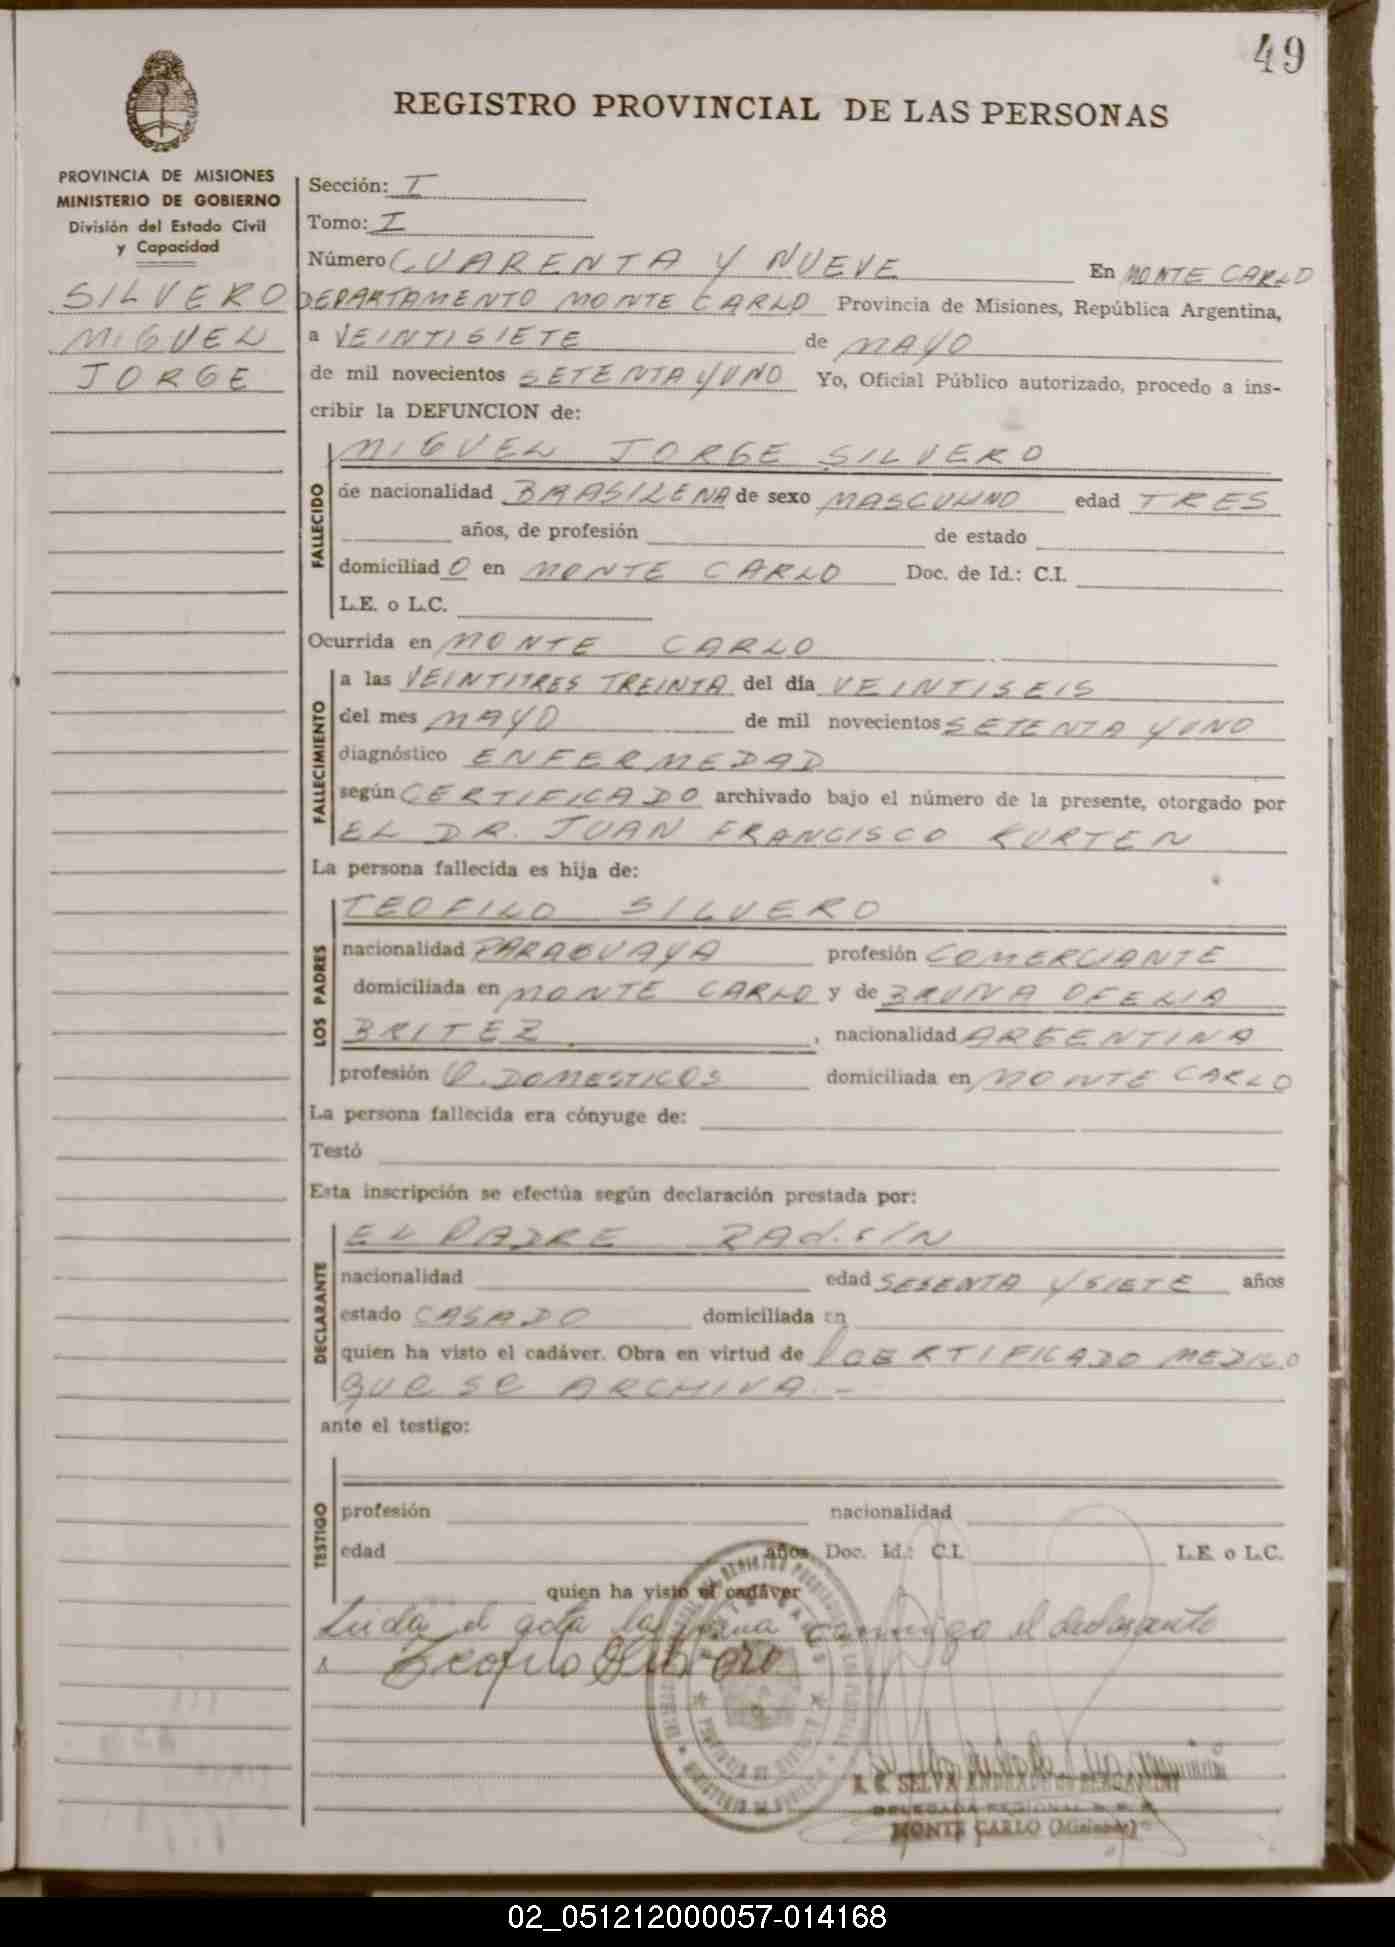 49
REGISTRO PROVINCIAL DE LAS PERSONAS
PROVINCIA DE MISIONES
MINISTERIO DE GOBIERNO
División del Estado Civil
y Capacidad
SILVERO
MIGUEL
JORGE
Sección: I
Tomo: I
Número CUARENTA Y NUEVE En MONTE CARLO
DEPARTAMENTO MONTE CARLO Provincia de Misiones, República Argentina,
a VEINTISIETE de MAYO
de mil novecientos SETENTA Y UNO Yo, Oficial Público autorizado, procedo a ins-
cribir la DEFUNCION de:
FALLECIDO
MIGUEL JORGE SILVERO
de nacionalidad BRASILENA de sexo MASCULINO edad TRES
años, de profesión de estado
domiciliad O en MONTE CARLO Doc. de Id.: C.I.
L.E. o L.C.
Ocurrida en MONTE CARLO
FALLECIMIENTO
a las VEINTITRES TREINTA del día VEINTISEIS
del mes MAYO de mil novecientos SETENTA Y UNO
diagnóstico ENFERMEDAD
según CERTIFICADO archivado bajo el número de la presente, otorgado por
EL DR. JUAN FRANCISCO KURTEN
La persona fallecida es hija de:
LOS PADRES
TEOFILO SILVERO
nacionalidad PARAGUAYA profesión COMERCIANTE
domiciliada en MONTE CARLO y de BRUNA OFELIA
BRITEZ , nacionalidad ARGENTINA
profesión Q. DOMESTICOS domiciliada en MONTE CARLO
La persona fallecida era cónyuge de:
Testó
Esta inscripción se efectúa según declaración prestada por:
DECLARANTE
EL PADRE
nacionalidad edad SESENTA Y SIETE años
estado CASADO domiciliada en
quien ha visto el cadáver. Obra en virtud de CERTIFICADO MEDICO
que se ARCHIVA.-
ante el testigo:
TESTIGO
profesión nacionalidad
edad años Doc. Id.: C.I. L.E. o L.C.
quien ha visto el cadáver
Leida el acta la firma conmigo el declarante
Teofilo Silvero
PROVINCIA DE MISIONES
MINISTERIO DE GOBIERNO
SELVA ANDRADE DE BERGAMINI
DELEGADA REGIONAL
MONTE CARLO (Misiones)
02_051212000057-014168